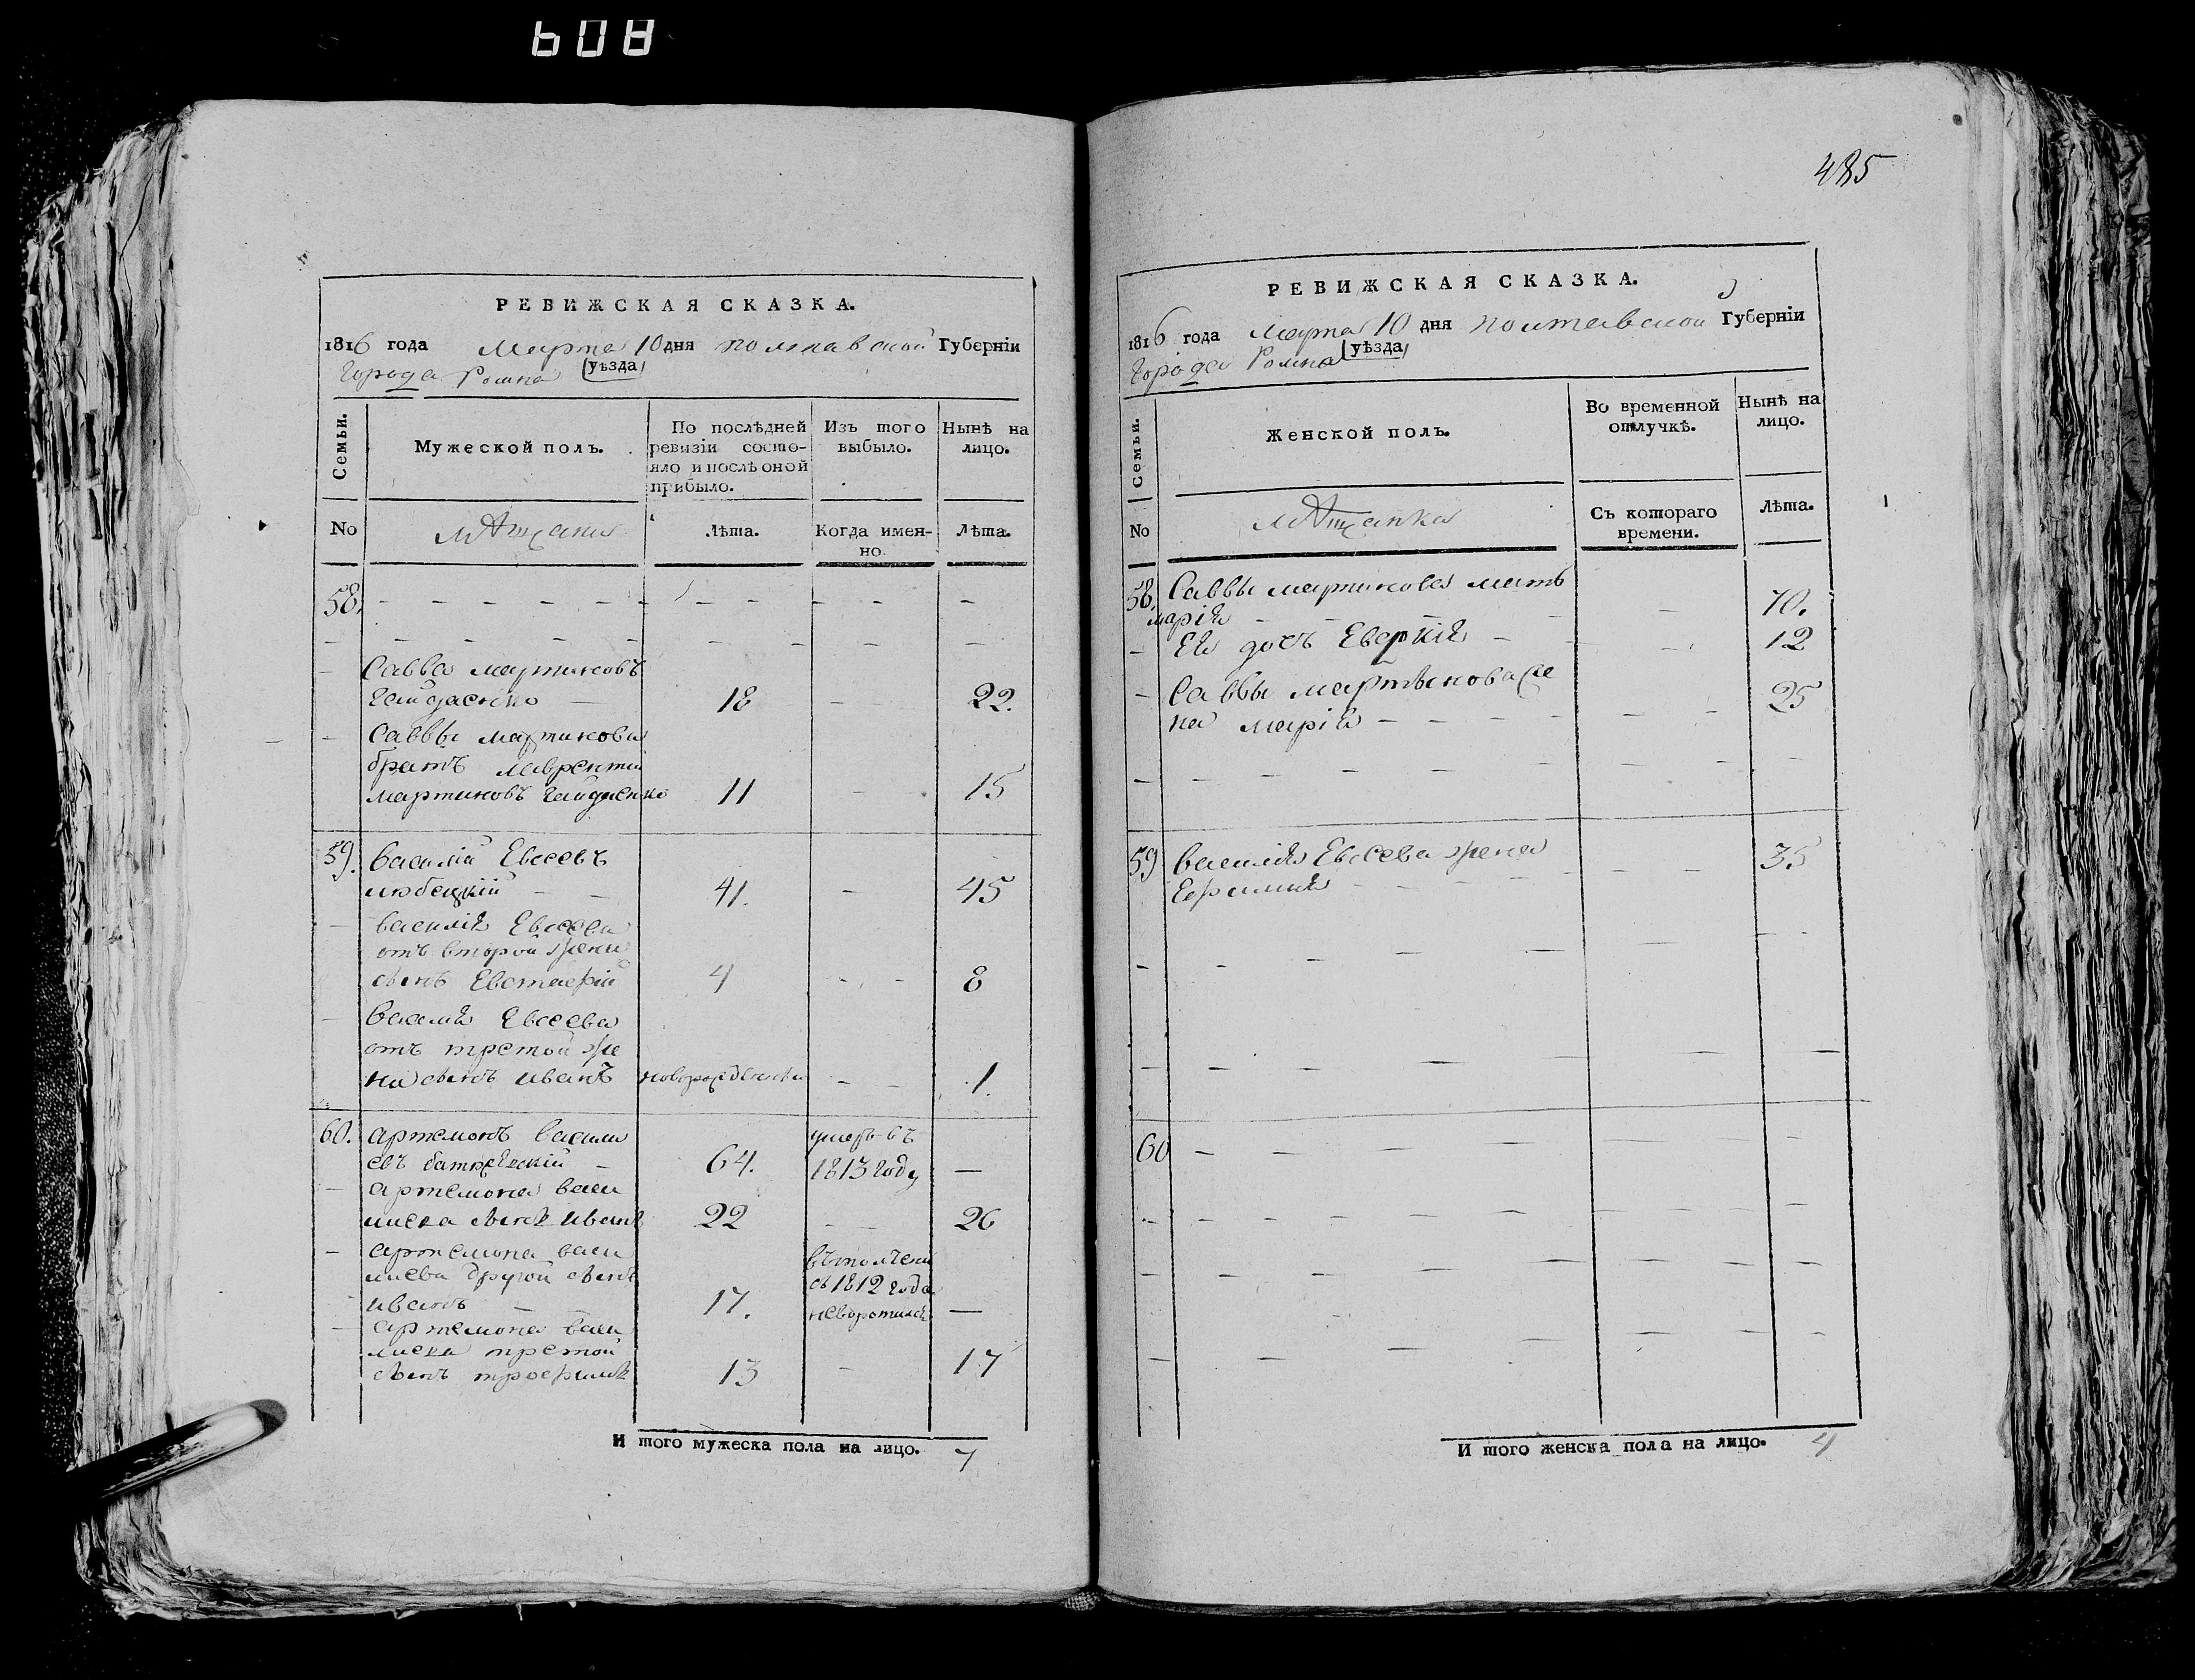 608
РЕВИЖСКАЯ СКАЗКА.
1816 года Марта 10 дня полтавской Губерніи
Города Ромна уѣзда
Семьи.
Мужеской полъ.
По послѣдней
ревизіи состо-
яло и послѣ оной
прибыло.
Изъ того
выбыло.
Нынѣ на
лицо.
No
мѣщани
Лѣта.
Когда имен-
но.
Лѣта.
58.
Савва мартиновъ
Гайдаенко 18 22.
Саввы мартинова
братъ лаврентій
мартиновъ Гайдаенко 11 15
59. Василій Евсеевъ
любецкій 41. 45
василія Евсеева
отъ второй жени
сынъ Евстафій 4 8
Василія Евсеева
отъ третой же
ни сынъ иванъ 1.
60. артемонъ васили умеръ въ
евъ 64. 1813 году
артемона васи
лиева сынъ иванъ 22 26
артемона васи
лиева другой сынъ съ 1812 года
иванъ 17. неворотился
артемона васи
лиева третой
сынъ трофимъ 13 17
И того мужеска пола на лицо. 7
485
РЕВИЖСКАЯ СКАЗКА.
1816 года Марта 10 дня полтавской Губерніи
Города Ромна уѣзда
Семьи.
Женской полъ.
Во временной
отлучкѣ.
Нынѣ на
лицо.
No
мѣщанка
Съ котораго
времени.
Лѣта.
58. Саввы мартинова мать
марія 70.
Ея дочь 12
Саввы мартынова же
на марія 25
59 василія Евсеева жена 35
Ефимія
60
И того женска пола на лицо. 4